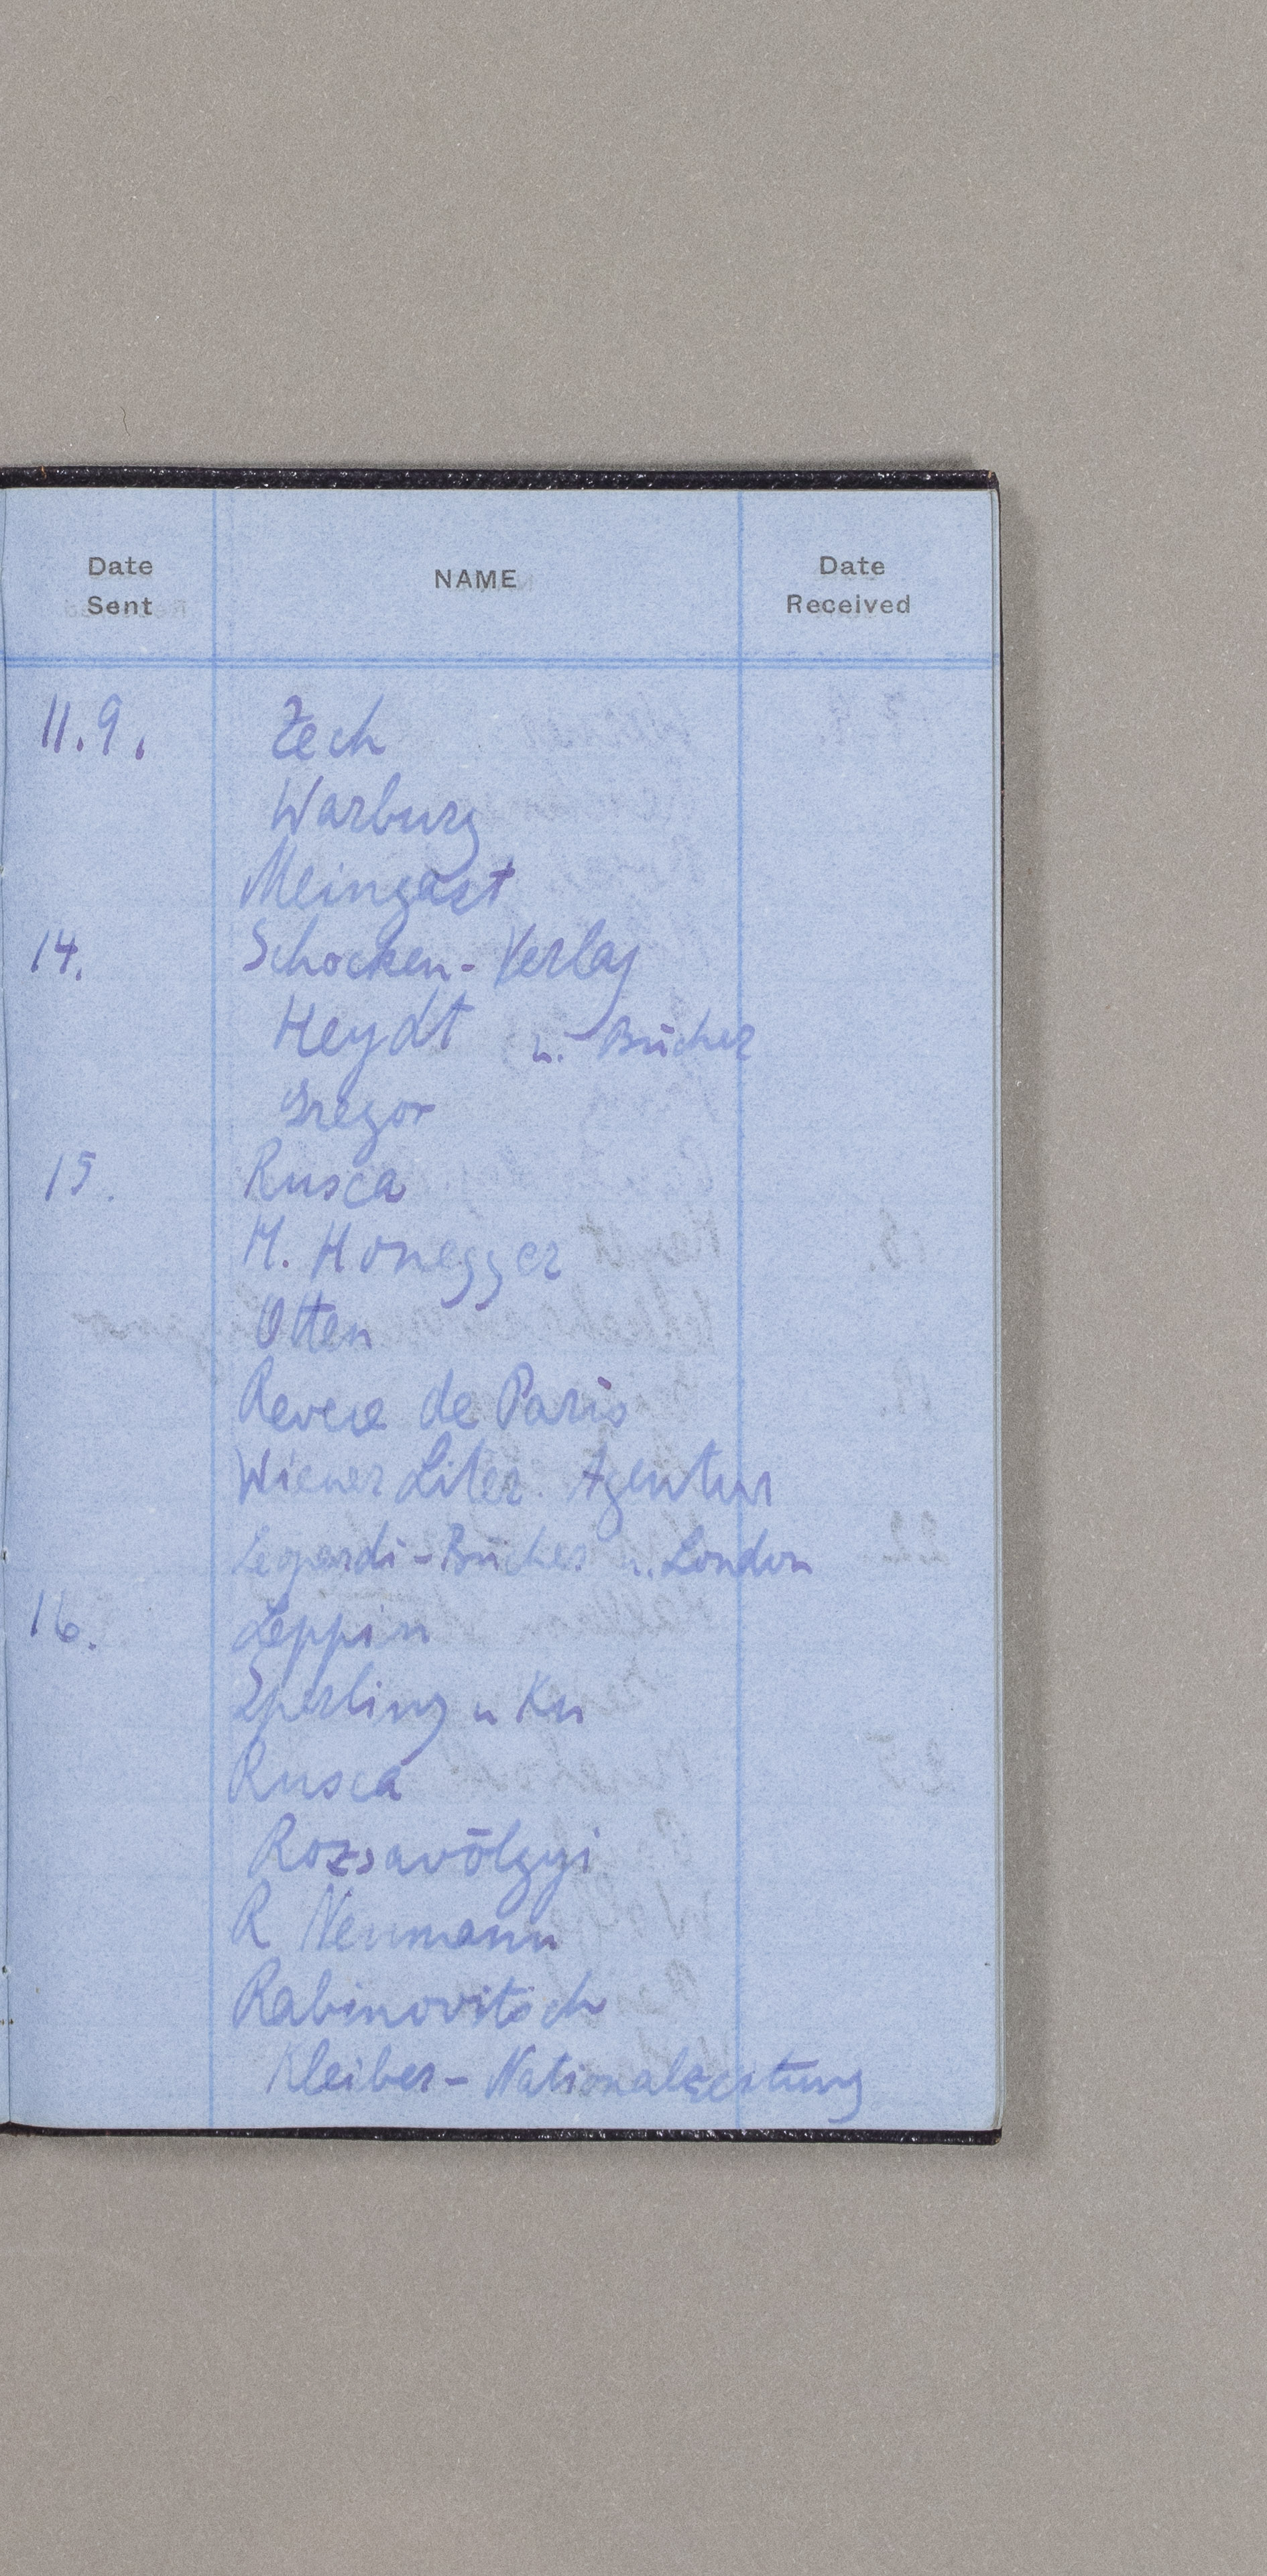 Date Sent NAME Date Received
11.9. Zech
Warburg
Meingast
14. Schocken-Verlag
Heydt u. Bücher
Gregor
15. Rusca
M. Honegger
Otten
Revue de Paris
Wiener Liter. Agentur
Legardi-Bücher n. London
16. Leppin
Sperling u Ku
Rusca
Rozsavölgyi
R Neumann
Rabinovitsch
Kleiber-Nationalzeitung